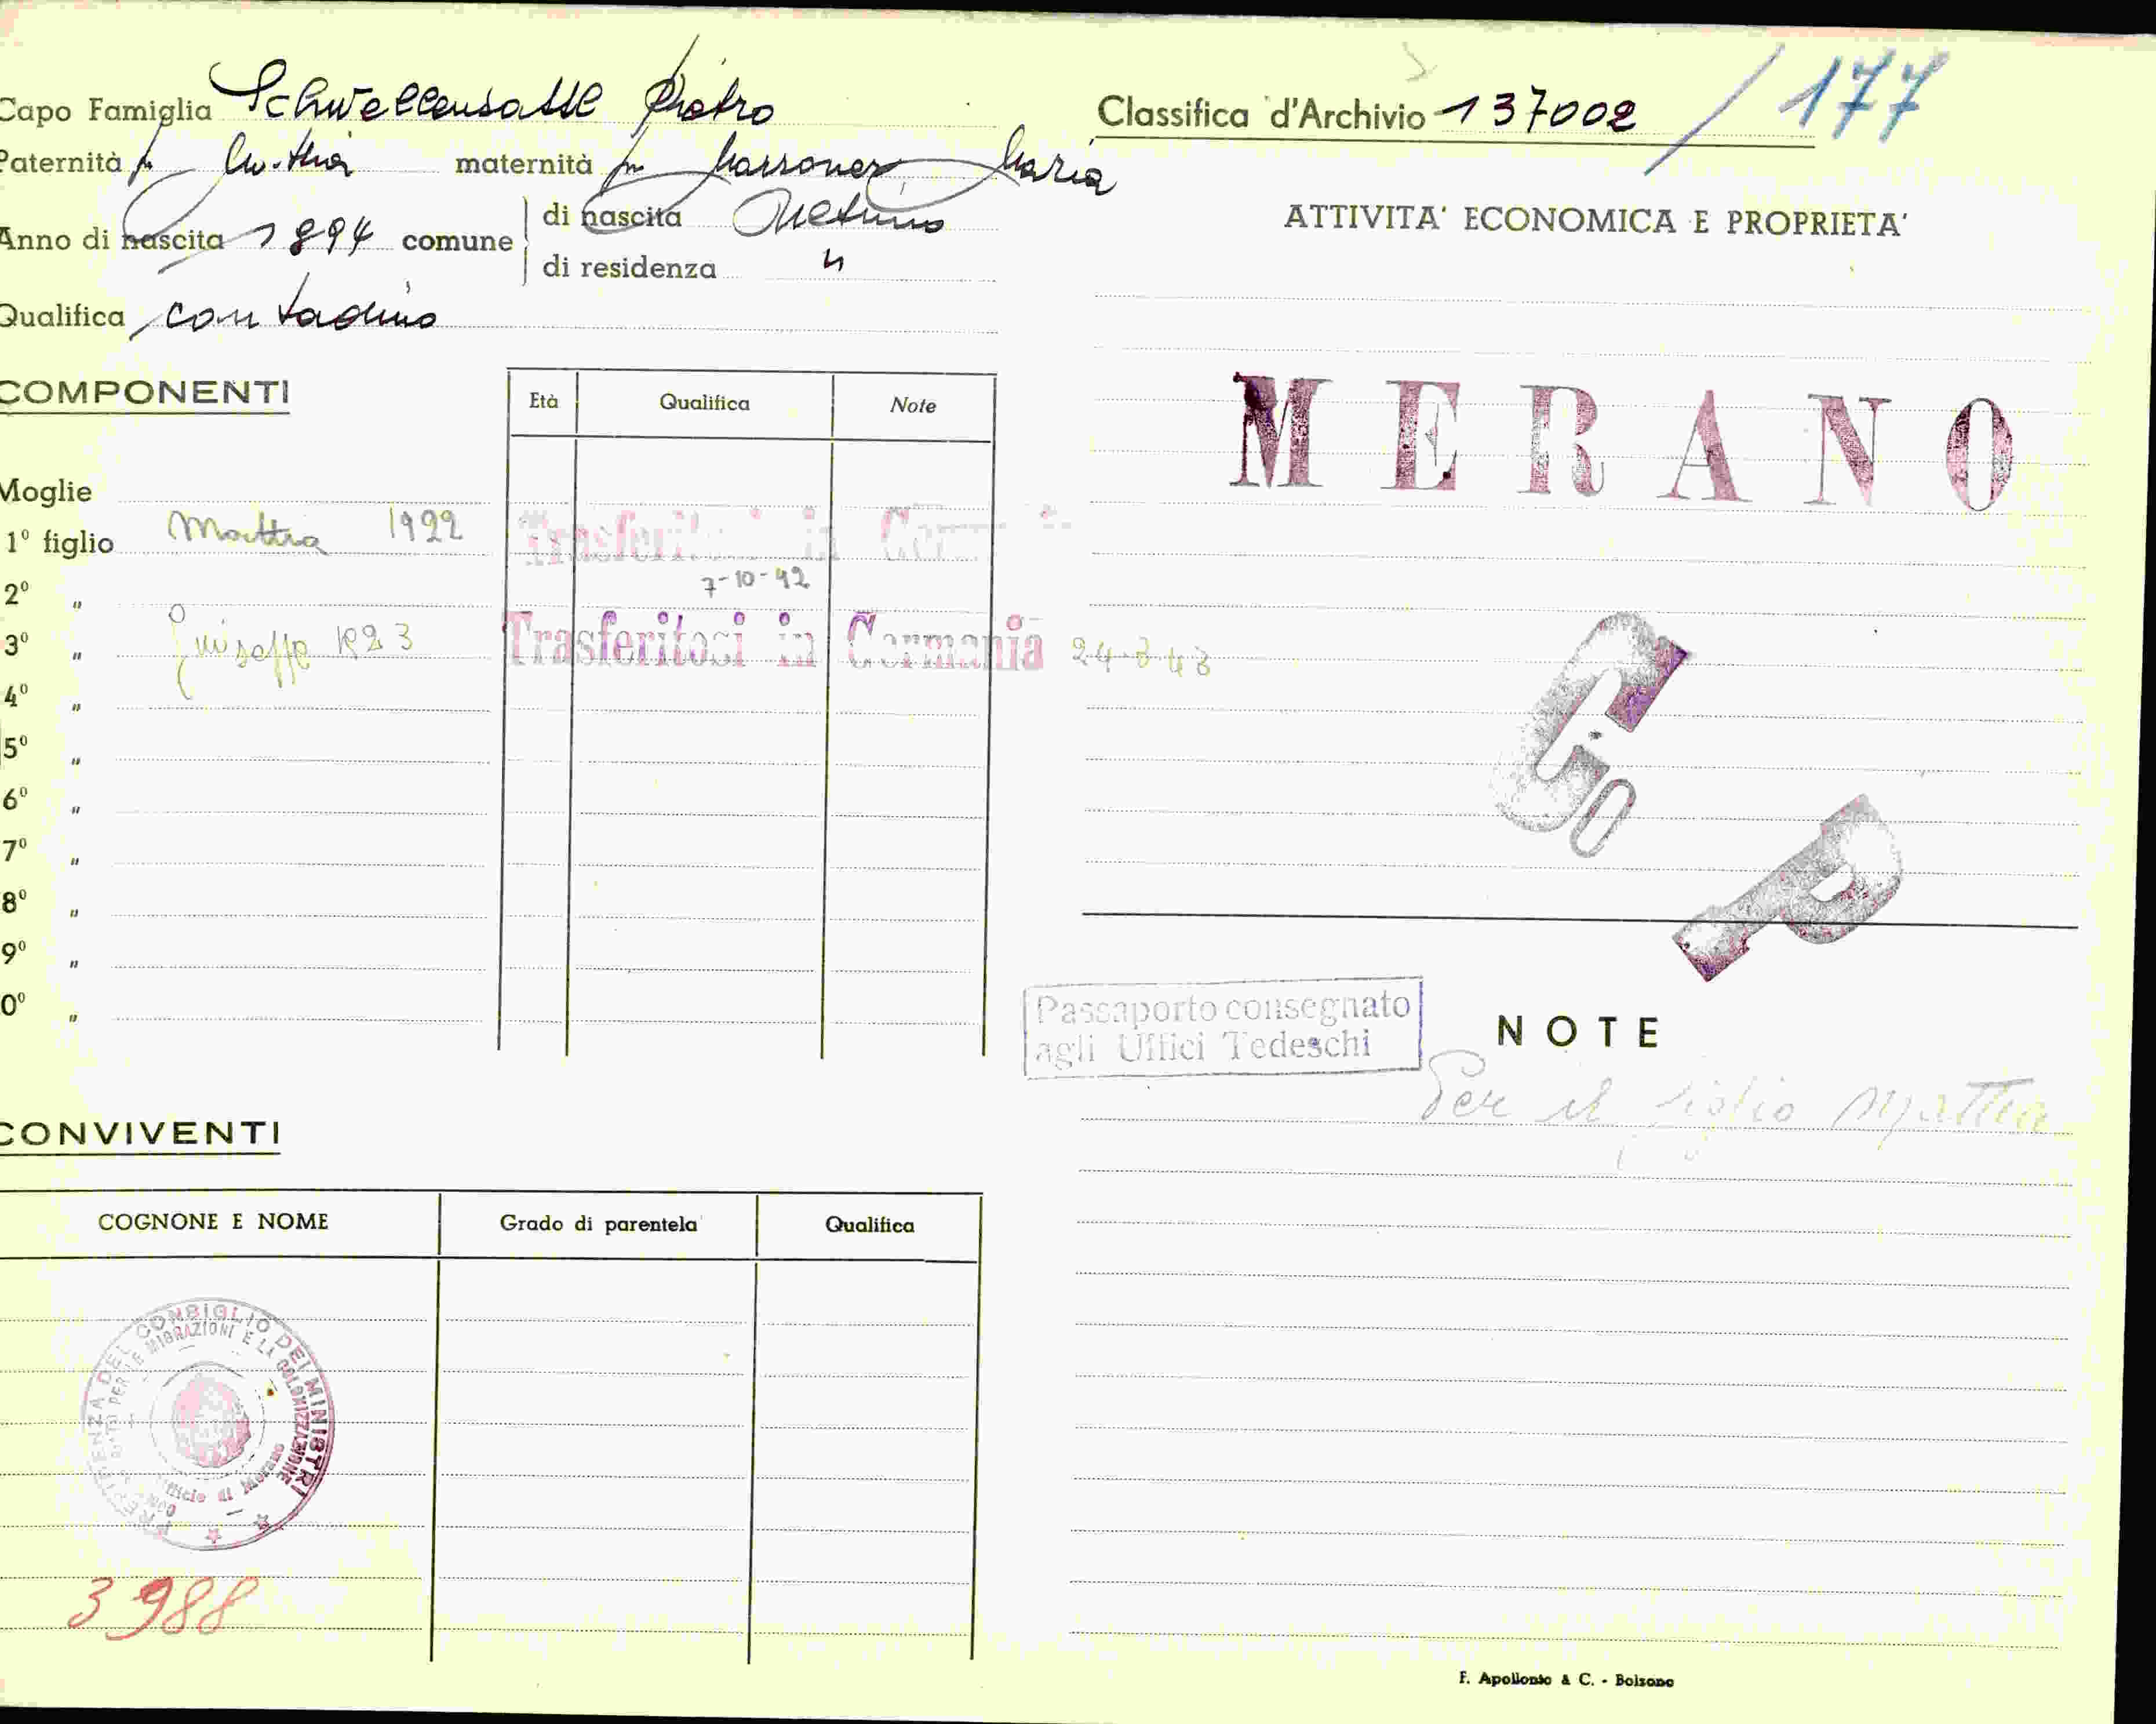 Capo Famiglia Schwellensattl Pietro
Paternità fu Mattia maternità fu Marsoner Maria
Anno di nascita 1894 comune di nascita Ultimo
di residenza "
Qualifica contadino
COMPONENTI
Età Qualifica Note
Moglie
1º figlio Mattia 1922 Trasferitosi in
2º " 7-10-42
3º " Giuseppe 1923 Trasferitosi in Germania 24-3-43
4º "
5º "
6º "
7º "
8º "
9º "
0º "
CONVIVENTI
COGNONE E NOME Grado di parentela Qualifica
CONSIGLIO DEI MINISTRI
MIGRAZIONI E LA COLONIZZAZIONE
di Merano
3988
Classifica d'Archivio 137002 / 177
ATTIVITA' ECONOMICA E PROPRIETA'
MERANO
G
P
Passaporto consegnato
agli Uffici Tedeschi
NOTE
Per il figlio Mattia
F. Apollonio & C. - Bolzano